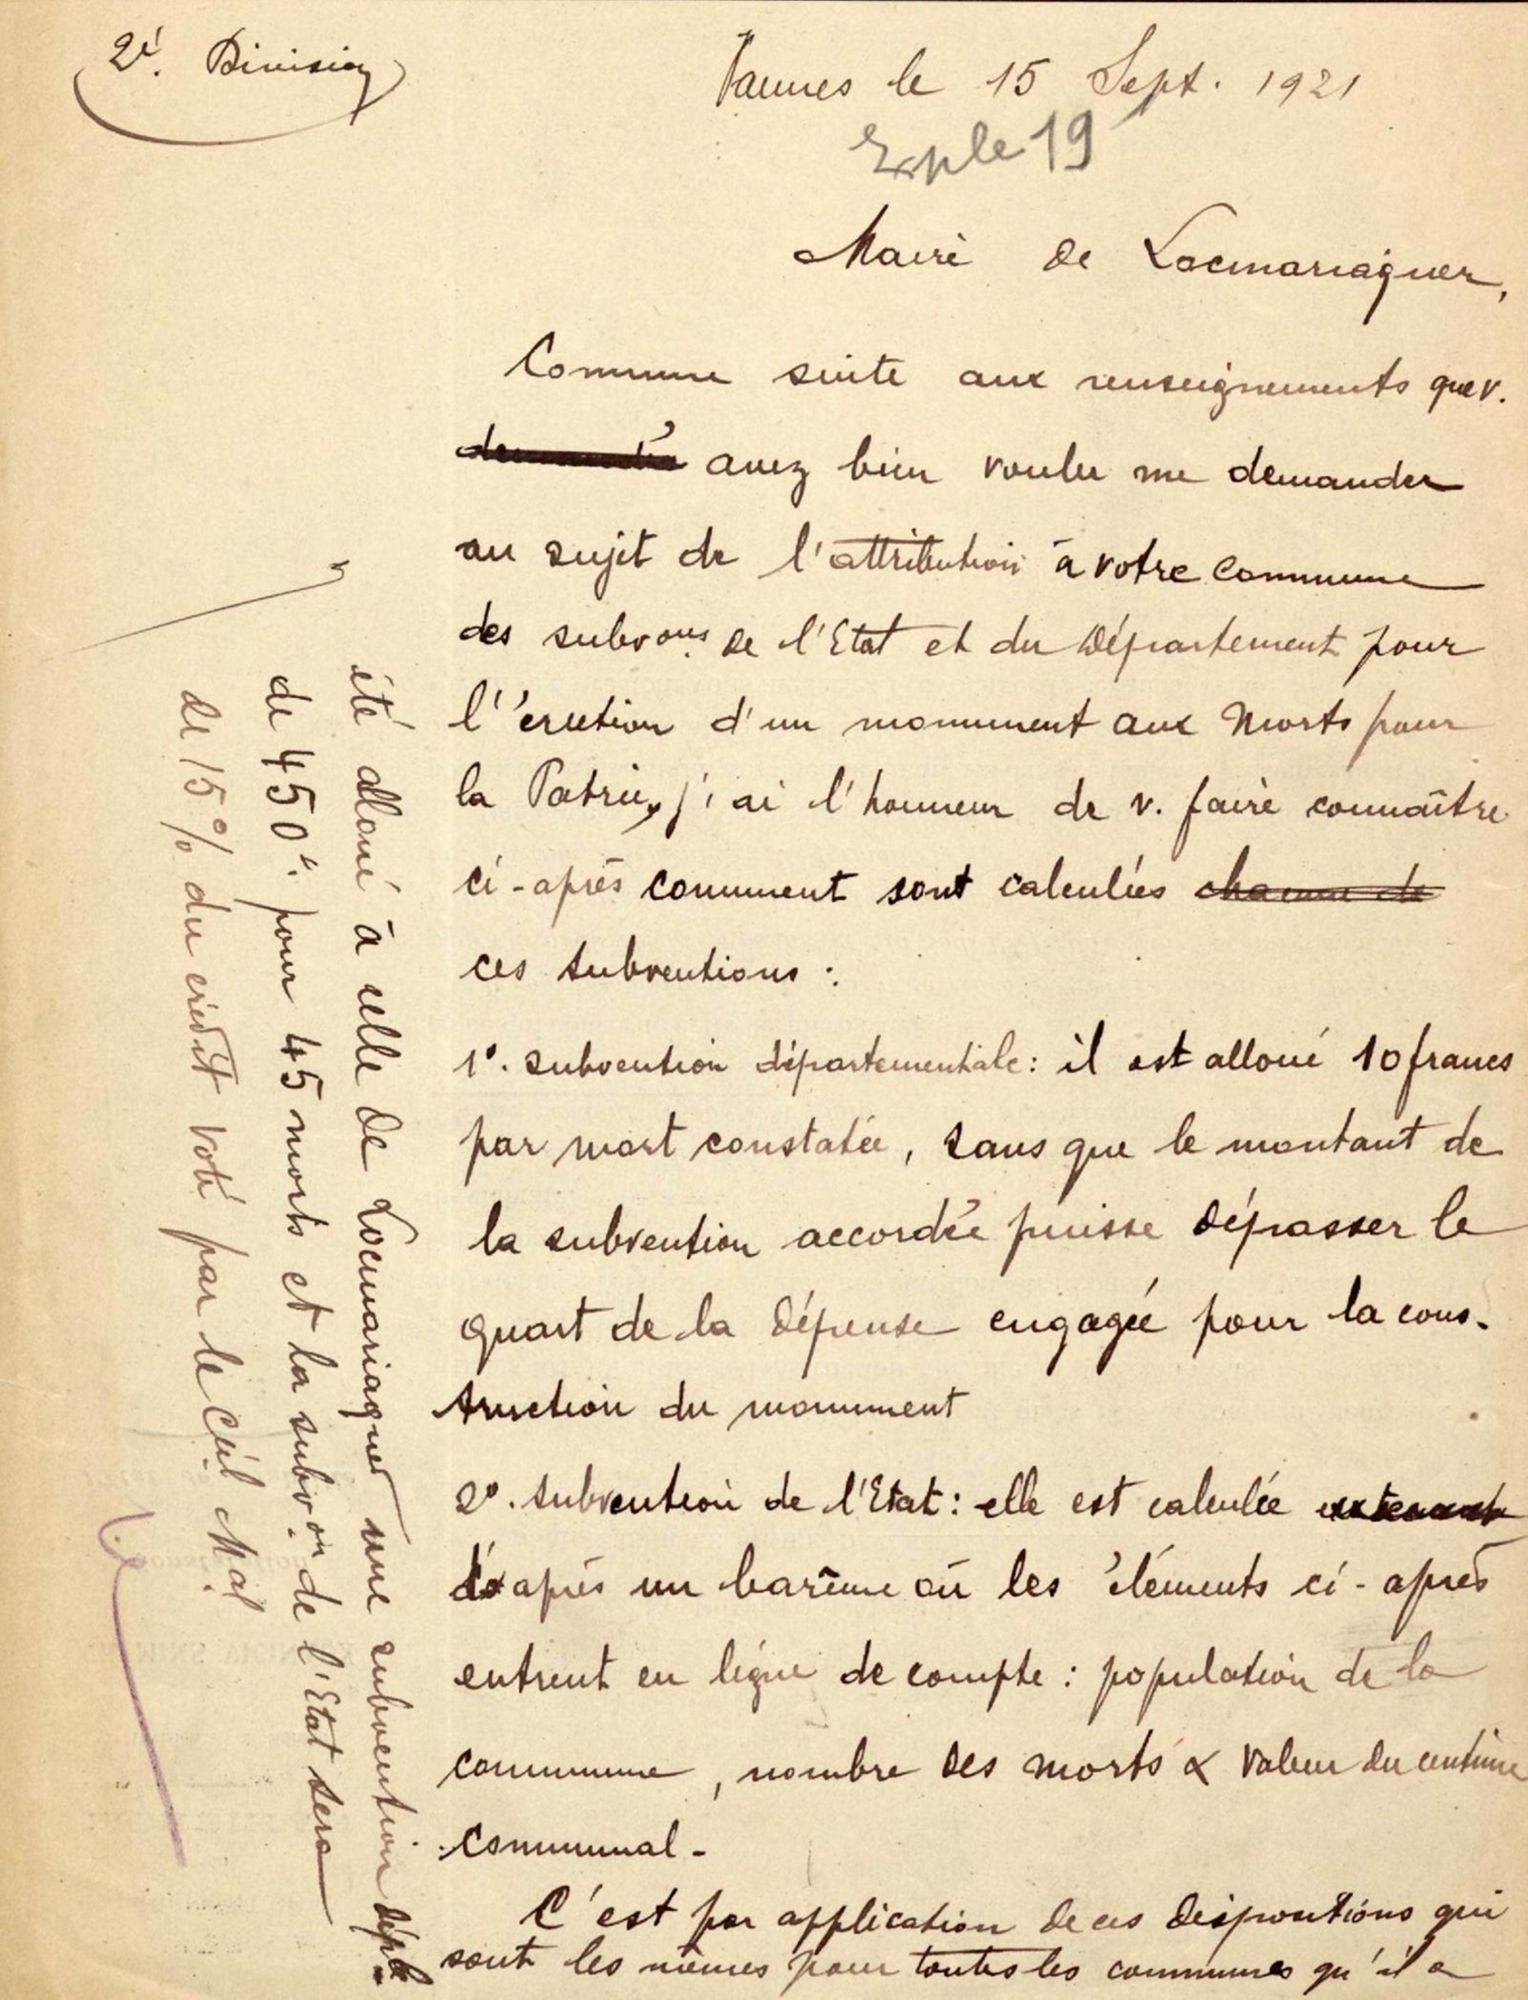 2è. Division
Vannes le 15 Sept. 1921
Exple 19
Maire de Locmariaquer,
Comme suite aux renseignements que v.
demandés avez bien voulu me demander
au sujet de l'attribution à votre commune
des subvons. de l'Etat et du Département pour
l'érection d'un monument aux Morts pour
la Patrie, j'ai l'honneur de v. faire connaître
ci-après comment sont calculées chacune de
ces subventions :
1°. subvention départementale : il est alloué 10 francs
par mort constatée, sans que le montant de
la subvention accordée puisse dépasser le
quart de la dépense engagée pour la cons-
truction du monument
2°. subvention de l'Etat : elle est calculée
d'après un barême où les éléments ci-après
entrent en ligne de compte : population de la
commune, nombre des morts & valeur du centime
communal -
C'est par application de ces dispositions qui
sont les mêmes pour toutes les communes qu'il a
été alloué à celle de Locmariaquer une subvention déple
de 450 f. pour 45 morts et la subvon de l'Etat sera
de 15 % du crédit voté par le Ceil Mal